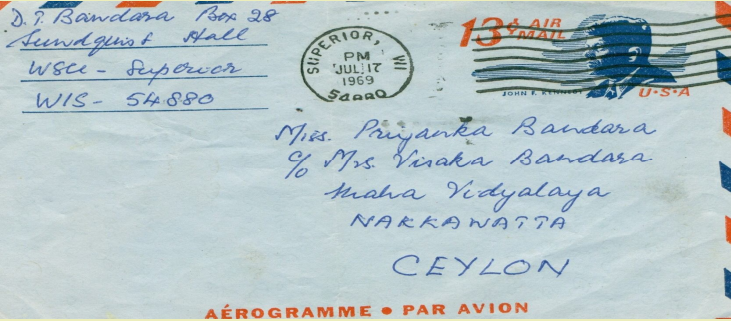 D. T. Bandara Box 28
Sundquist Hall
WSU - Superior
WIS - 54880
SUPERIOR, WI
PM
JUL 17
1969
54880
13¢ AIR
MAIL
JOHN F. KENNEDY
U·S·A
Miss. Priyanka Bandara
c/o Mrs. Visaka Bandara
Maha Vidyalaya
NAKKAWATTA
CEYLON
AÉROGRAMME • PAR AVION